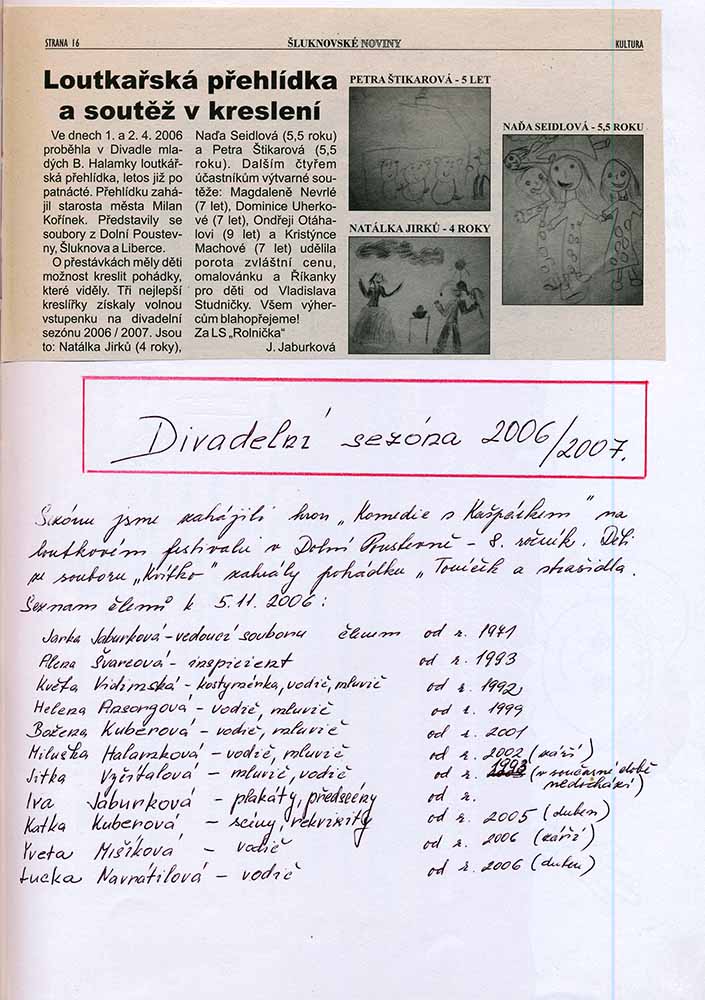 STRANA 16 ŠLUKNOVSKÉ NOVINY KULTURA
Loutkařská přehlídka
a soutěž v kreslení
Ve dnech 1. a 2. 4. 2006
proběhla v Divadle mla-
dých B. Halamky loutkář-
ská přehlídka, letos již po
patnácté. Přehlídku zahá-
jil starosta města Milan
Kořínek. Představily se
soubory z Dolní Poustev-
ny, Šluknova a Liberce.
O přestávkách měly děti
možnost kreslit pohádky,
které viděly. Tři nejlepší
kreslířky získaly volnou
vstupenku na divadelní
sezónu 2006 / 2007. Jsou
to: Natálka Jirků (4 roky),
Naďa Seidlová (5,5 roku)
a Petra Štikarová (5,5
roku). Dalším čtyřem
účastníkům výtvarné sou-
těže: Magdaleně Nevrlé
(7 let), Dominice Uherko-
vé (7 let), Ondřeji Otáha-
lovi (9 let) a Kristýnce
Machové (7 let) udělila
porota zvláštní cenu,
omalovánku a Říkanky
pro děti od Vladislava
Studničky. Všem výher-
cům blahopřejeme!
Za LS „Rolnička“
J. Jaburková
PETRA ŠTIKAROVÁ - 5 LET
NATÁLKA JIRKŮ - 4 ROKY
NAĎA SEIDLOVÁ - 5,5 ROKU
Divadelní sezóna 2006/2007.
Sezónu jsme zahájili hrou „Komedie s Kašpárkem“ na
loutkovém festivalu v Dolní Poustevně - 8. ročník. Děti
ze souboru „Kvítko“ zahrály pohádku „Toníček a strašidla.
Seznam členů k 5.11.2006:
Janka Jaburková - vedoucí souboru členem od r. 1971
Alena Švarcová - inspicient od r. 1993
Květa Vidimská - kostymérka, vodič, mluvič od r. 1992
Helena Ansorgová - vodič, mluvič od r. 1999
Božena Kuberová - vodič, mluvič od r. 2001
Miluška Halamková - vodič, mluvič od r. 2002 (září)
Jitka Vyčítalová - mluvič, vodič od r. 1993 (v současné době nedochází)
Iva Jaburková - plakáty, předscény od r.
Katka Kuberová - scény, rekvizity od r. 2005 (duben)
Yveta Mišíková - vodič od r. 2006 (září)
Lucka Navrátilová - vodič od r. 2006 (duben)